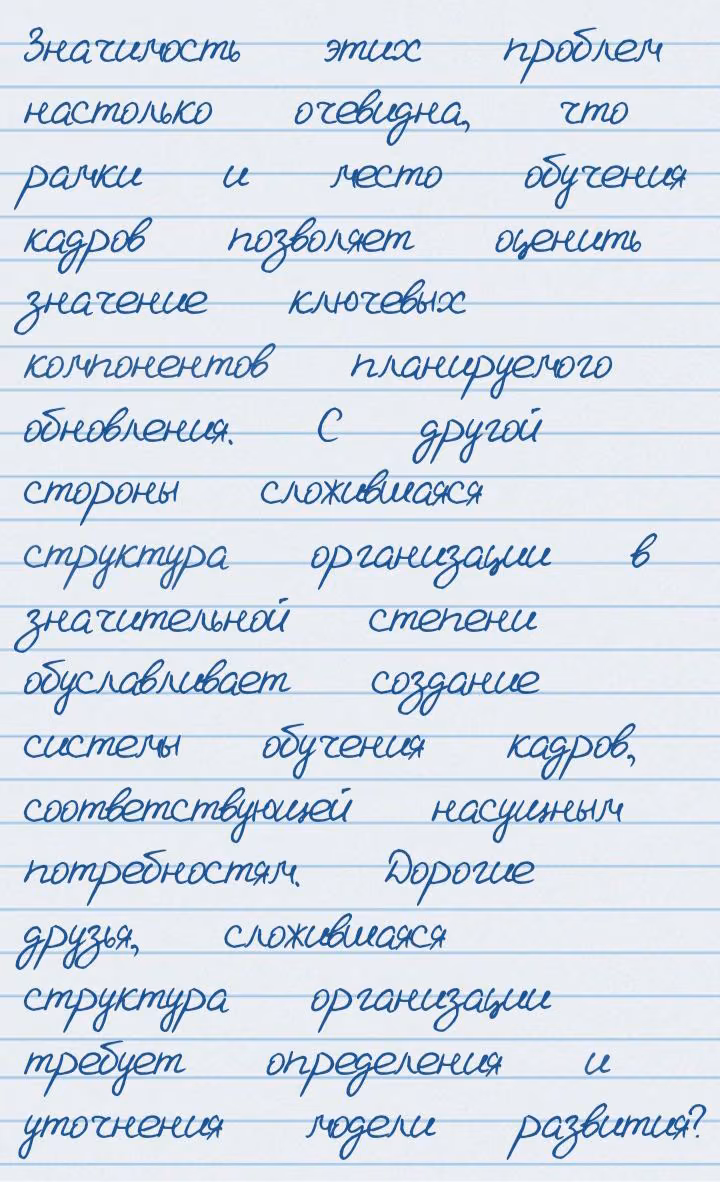 Значимость этих проблем
настолько очевидна, что
рамки и место обучения
кадров позволяет оценить
значение ключевых
компонентов планируемого
обновления. С другой
стороны сложившаяся
структура организации в
значительной степени
обуславливает создание
системы обучения кадров,
соответствующей насущным
потребностям. Дорогие
друзья, сложившаяся
структура организации
требует определения и
уточнения модели развития?